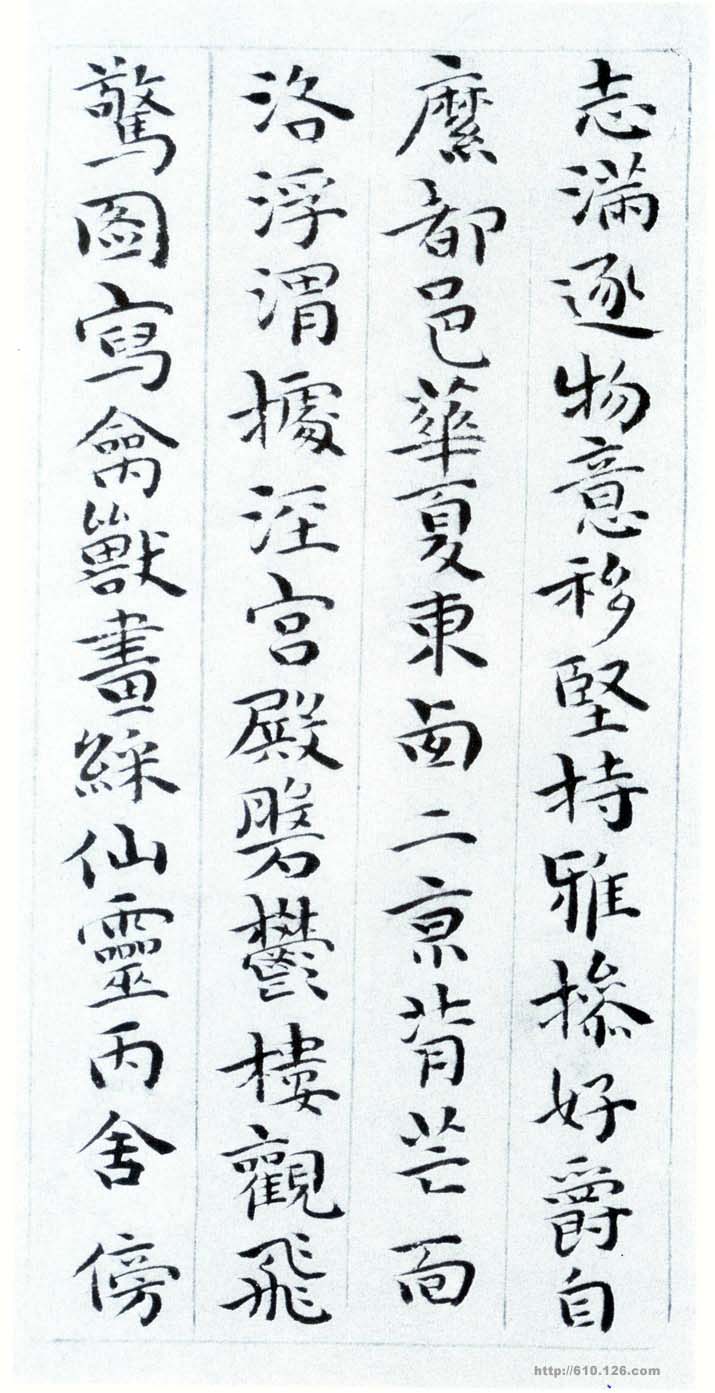 志滿逐物意移堅持雅操好爵自
縻都邑華夏東西二京背芒面
洛浮渭據涇宮殿盤鬱樓觀飛
驚圖寫禽獸畫綵仙靈丙舍傍
http://610.126.com